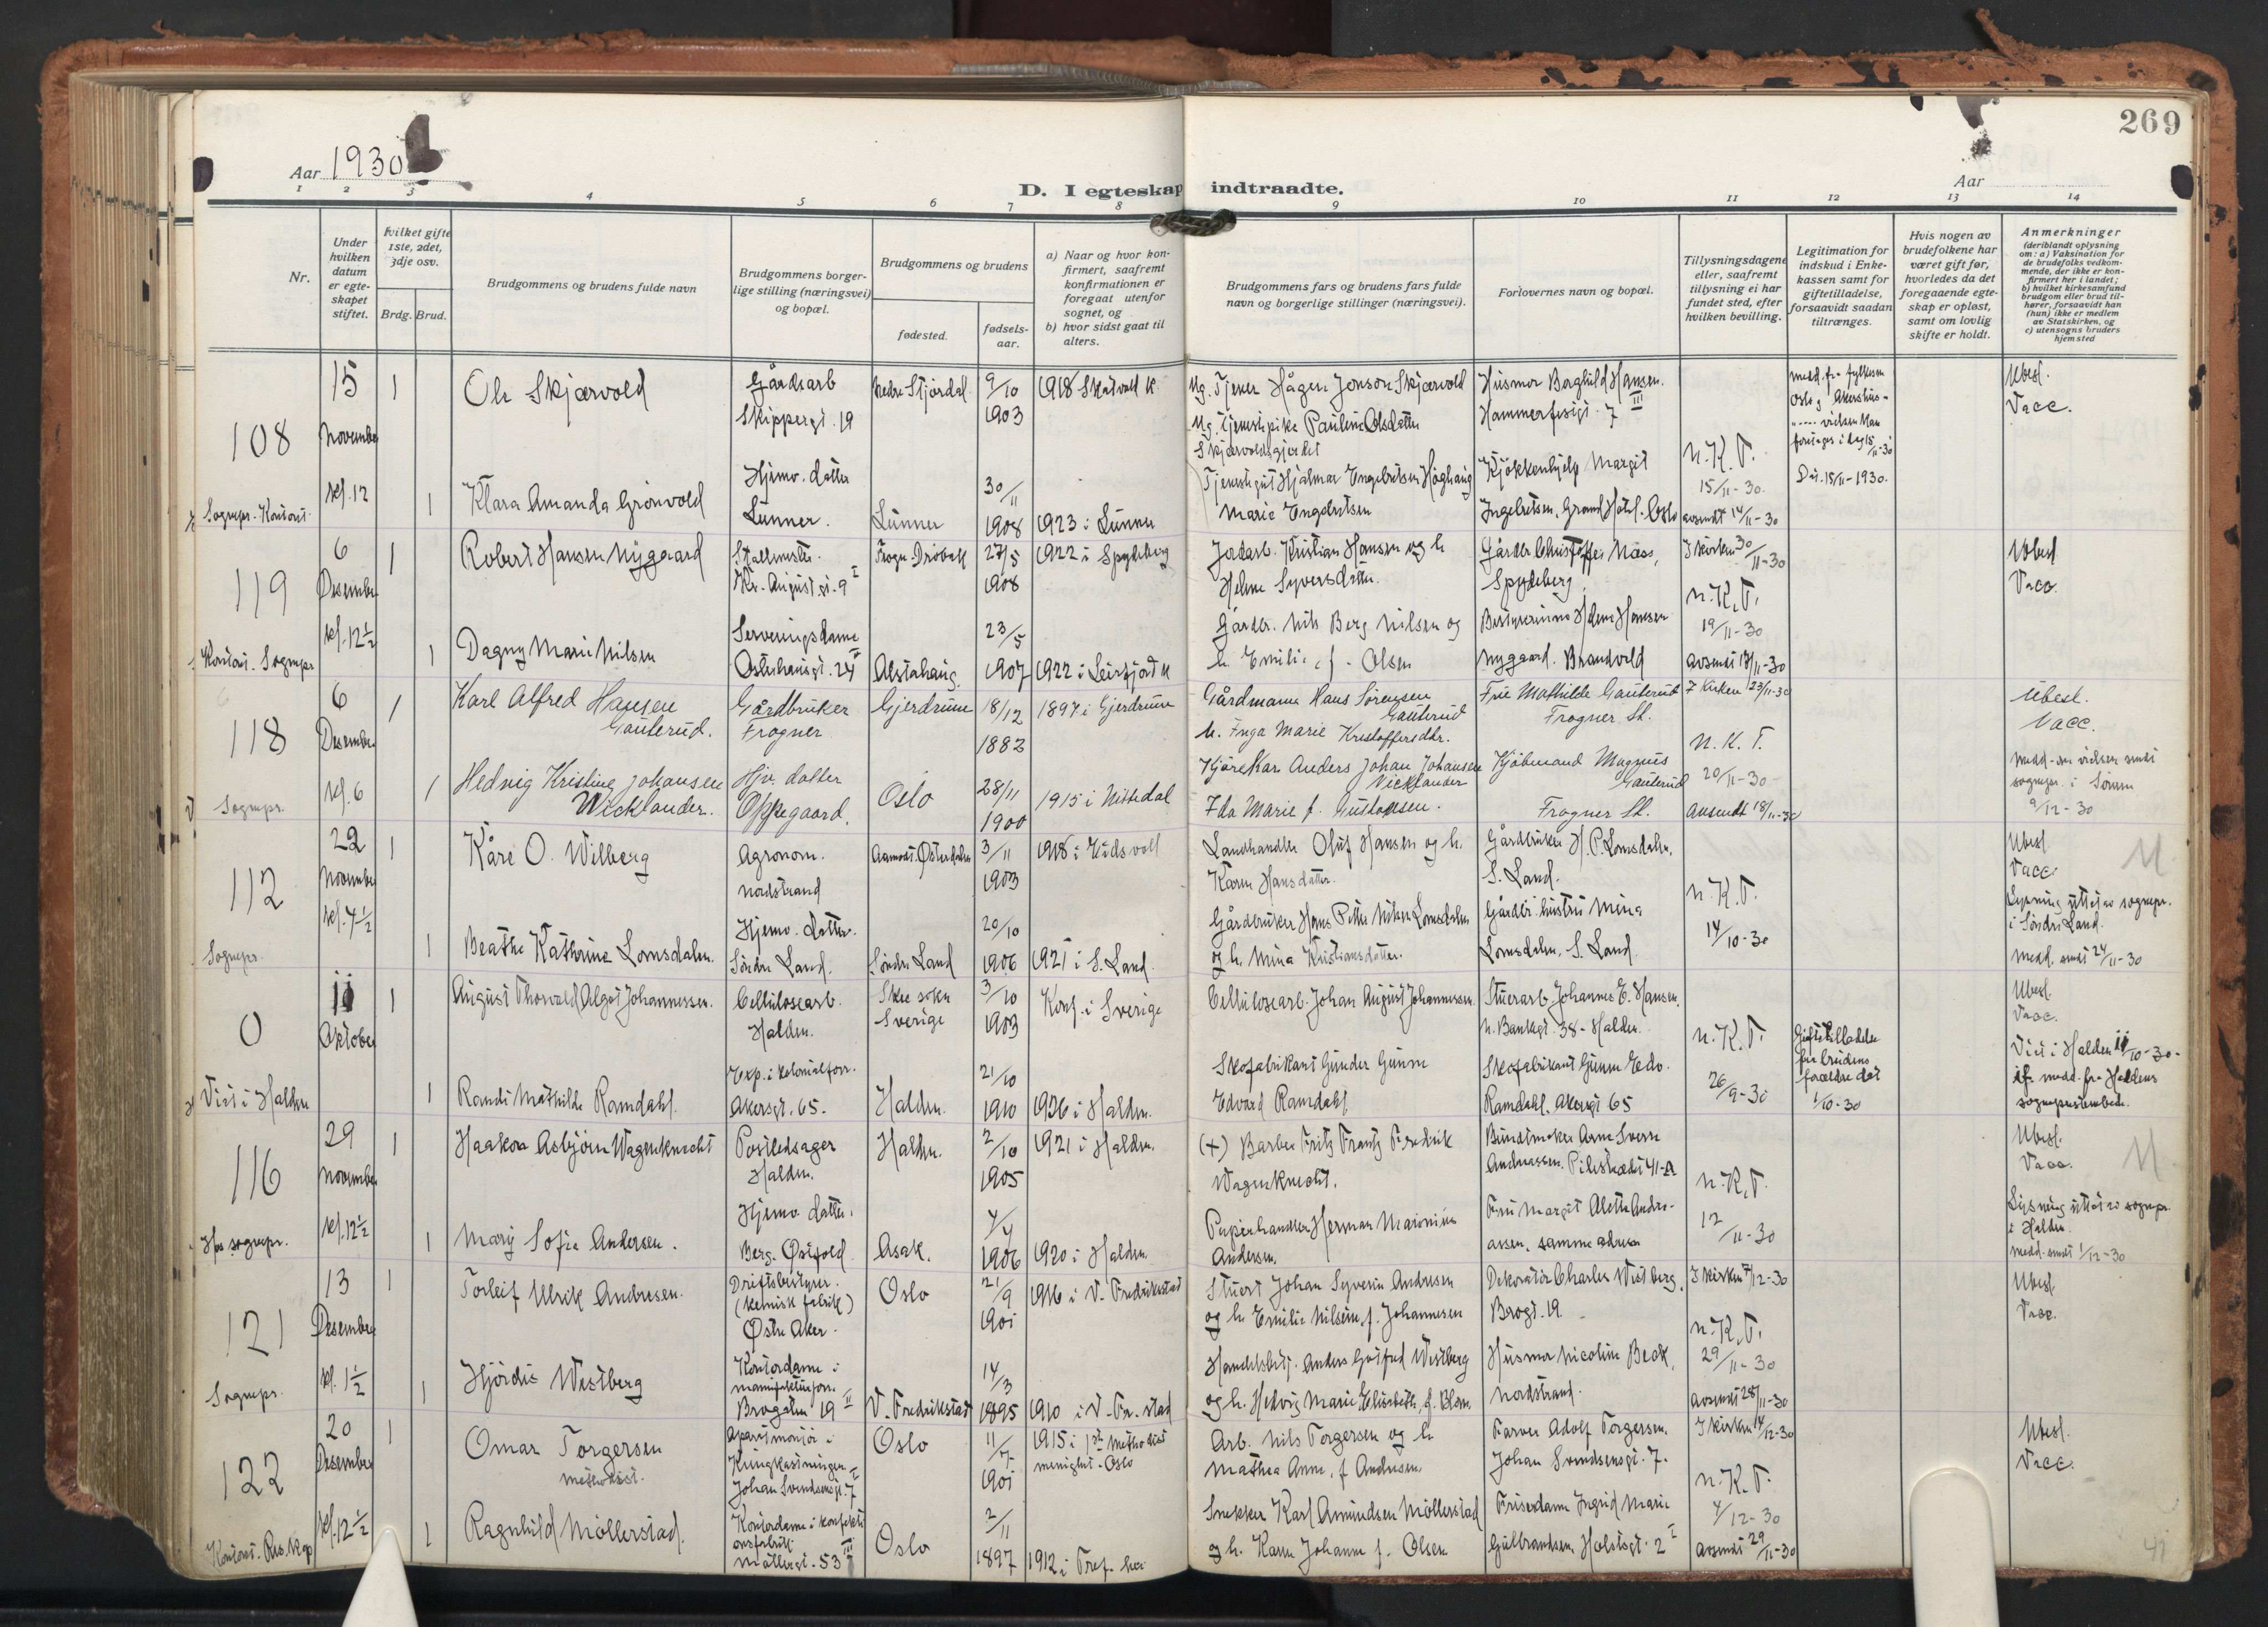 269
Aar 1930
Aar
D. I egteskap indtraadte.
1 2 3 4 5 6 7 8 9 10 11 12 13 14
Nr.
Under hvilken datum er egteskapet stiftet.
hvilket gifte 1ste, 2det, 3dje osv.
Brdg. Brud.
Brudgommens og brudens fulde navn
Brudgommens borgerlige stilling (næringsvei) og bopæl.
Brudgommens og brudens
fødested.
fødselsaar.
a) Naar og hvor konfirmert, saafremt konfirmationen er foregaat utenfor sognet, og
b) hvor sidst gaat til alters.
Brudgommens fars og brudens fars fulde navn og borgerlige stillinger (næringsvei).
Forlovernes navn og bopæl.
Tillysningsdagene eller, saafremt tillysning ei har fundet sted, efter hvilken bevilling.
Legitimation for indskud i Enkekassen samt for giftetilladelse, forsaavidt saadan tiltrænges.
Hvis nogen av brudefolkene har været gift før, hvorledes da det foregaaende egteskap er opløst, samt om lovlig skifte er holdt.
Anmerkninger
(deriblandt oplysning om: a) Vaksination for de brudefolks vedkommende, der ikke er konfirmert her i landet; b) hvilket kirkesamfund brudgom eller brud tilhører, forsaavidt han (hun) ikke er medlem av Statskirken, og c) utensogns bruders hjemsted
108 15 November kl. 12
1 Ole Skjærvold
Gårdsarb Skippergt. 19
Nedre Stjørdal 9/10 1903
1918 Skatvold k.
Ug. Tjener Hågen Jonson Skjærvold
Ug. Tjenestpike Pauline Olsdatter
Husmor Borghild Hansen. Hammerfestgt. 7 III
medd. fr. fylkesm Oslo og Akershus
foretages i dag 15/11-30
Dat. 15/11-1930.
Ubesl. Vacc.
Sognepr. Kontort.
1 Klara Amanda Grønvold
Hjemv. datter Lunner.
Lunner 30/11 1908
1923 i Lunner
Tjenestgut Hjalmar Engebretsen Høghaug
Marie Engebretsen
Kjøkkenhjelp Margit Ingebretsen, Grand Hotel. Oslo
N.K.T. 15/11-30.
avsendt 14/11-30
119 6 Desember kl. 12½
1 Robert Hansen Nygaard
Kr. Augustgt. 9 I
Frogn Drøbak 27/5 1908
1922 i Spydeberg
Jordarb. Kristian Hansen og h. Helene Syversdatter.
Gårdbr Christoffer Næss, Spydeberg
I kirken 30/11-30
N.K.T. 19/11-30
Ubesl Vacc
Kontort. Sognepr
1 Dagny Marie Nilsen
Serveringsdame Osterhausgt. 24 II
Alstahaug 23/5 1907
1922 i Leirfjord k
Gårdbr. Nils Berg Nilsen og h. Emilie f. Olsen
Bestyrerinne Helene Hansen Nygaard. Brandvold
avsendt 17/11-30
118 6 Desember kl. 6
1 Karl Alfred Hansen Gauterud.
Gårdbruker Frogner
Gjerdrum 18/12 1882
1897 i Gjerdrum
Gårdmann Hans Sørensen Gauterud
h. Inga Marie Kristoffersdtr.
Frue Mathilde Gauterud Frogner St.
I Kirken 23/11-30
N.K.T. 20/11-30
Ubesl. Vacc.
Sognepr.
1 Hedvig Kristine Johansen Wicklander.
Hjv. datter Oppegaard.
Oslo 28/11 1900
1915 i Nittedal
Kjørekar Anders Johan Johansen Wicklander
Ida Marie f. Gustavsen.
Kjøbmand Magnus Gauterud Frogner St.
Avsendt 18/11-30
medd. om vielsen sendt sognepr. i Sørum 9/12-30
112 22 November kl. 4½
1 Kåre O. Wilberg
Agronom. Nordstrand
Aamodt. Østerdalen 3/11 1903
1918 i Eidsvoll
Landhandler Oluf Hansen og h. Karen Hansdatter.
Gårdbruker H. P. Lomsdalen, S. Land.
N.K.T. 14/10-30
Ubesl Vacc
Lysning uttat av sognepr. i Søndre Land.
Sognepr.
1 Beathe Kathrine Lomsdalen.
Hjemv. datter. Søndre Land.
Søndre Land 20/10 1906
1921 i S. Land.
Gårdbruker Hans Petter Nilsen Lomsdalen og h. Mina Kristiansdatter.
Gårdbr. hustru Mina Lomsdalen, S. Land.
medd. sendt 24/11-30
0 11 Oktober
1 August Thorvald Algot Johannessen.
Cellulosearb. Halden.
Skee sokn Sverige 3/10 1903
Konf. i Sverige
Cellulosearb. Johan August Johannessen.
Stuerarb. Johannes E. Hansen, N. Bankgt. 38 - Halden.
N.K.T. 26/9-30
Giftetilladelse fra brudens forældre dat 1/10-30
Ubesl. Vacc.
Viet i Halden 11/10-30 - ifr. medd. fra Haldens sogneprestembede.
Viet i Halden
1 Randi Mathilde Ramdahl.
Exp. i kolonialforr. Akersgt. 65.
Halden. 21/10 1910
1926 i Halden.
Skofabrikant Gunder Gunne Edvard Ramdahl
Skofabrikant Gunne Edv. Ramdahl. Akersgt 65
116 29 November kl. 12½
1 Haakon Asbjørn Wagenknecht
Postledsager Halden.
Halden. 2/10 1905
1921 i Halden.
(+) Barber Fritz Frantz Fredrik Wagenknecht.
Buntmaker Arne Sverre Andreassen. Pilestrædet 41 A
N.K.T. 12/11-30
Ubesl. Vacc.
Lysning uttat av sognepr. i Halden.
Hos sognepr.
1 Mary Sofie Andersen.
Hjemv. datter. Berg. Østfold
Asak. 4/4 1906
1920 i Halden
Papirhandler Herman Marinius Andersen.
Fru Margit Alette Andreassen, samme adresse
medd. sendt 1/12-30
121 13 Desember kl. 1½
1 Torleif Ulrik Andresen.
Driftsbestyrer. (kemisk fabrik) Østre Aker
Oslo 21/9 1901
1916 i V. Fredrikstad
Stuert Johan Syverin Andresen og h. Emilie Nilsine, f. Johannesen
Dekoratør Charles Westberg, Brogt. 19
I kirken 7/12-30
N.K.T. 29/11-30
Ubesl Vacc.
Sognepr.
1 Hjördis Westberg
Kontordame i manufakturforr. Brogaten 19 II
V. Fredrikstad 14/3 1895
1910 i V. Fr. stad
Handelsbetj. Anders Gotfred Westberg og h. Hedvig Marie Elisabeth, f. Blom.
Husmor Nicoline Beck, Nordstrand.
avsendt 28/11-30
122 20 Desember kl. 12½
1 Omar Torgersen
methodist.
Kringkastningen Johan Svendsensgt. 7 I
Oslo 11/7 1901
1915 i 1ste Methodist menighet - Oslo
Arb. Nils Torgersen og h. Mathea Anne, f Andresen.
Farver Adolf Torgersen. Johan Svendsensgt. 7.
I kirken 14/12-30
N.K.T. 4/12-30
Ubesl. Vacc.
Kontort. Res. Kap
1 Ragnhild Möllerstad.
Kontordame i konfektionsfabrik Møllergt. 53 III
Oslo 2/11 1897
1912 i Tref. her
Snekker Karl Amundsen Möllerstad og h. Karen Johanne f. Olsen
Friserdame Ingrid Marie Gulbrandsen, Holstsgt. 2 I
avsendt 29/11-30